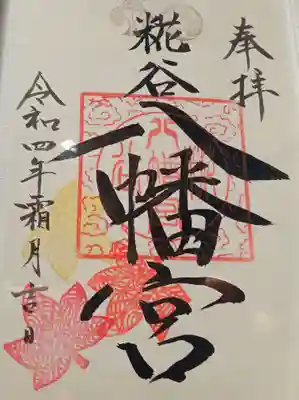 奉拝
糀谷八幡宮
令和四年霜月吉日